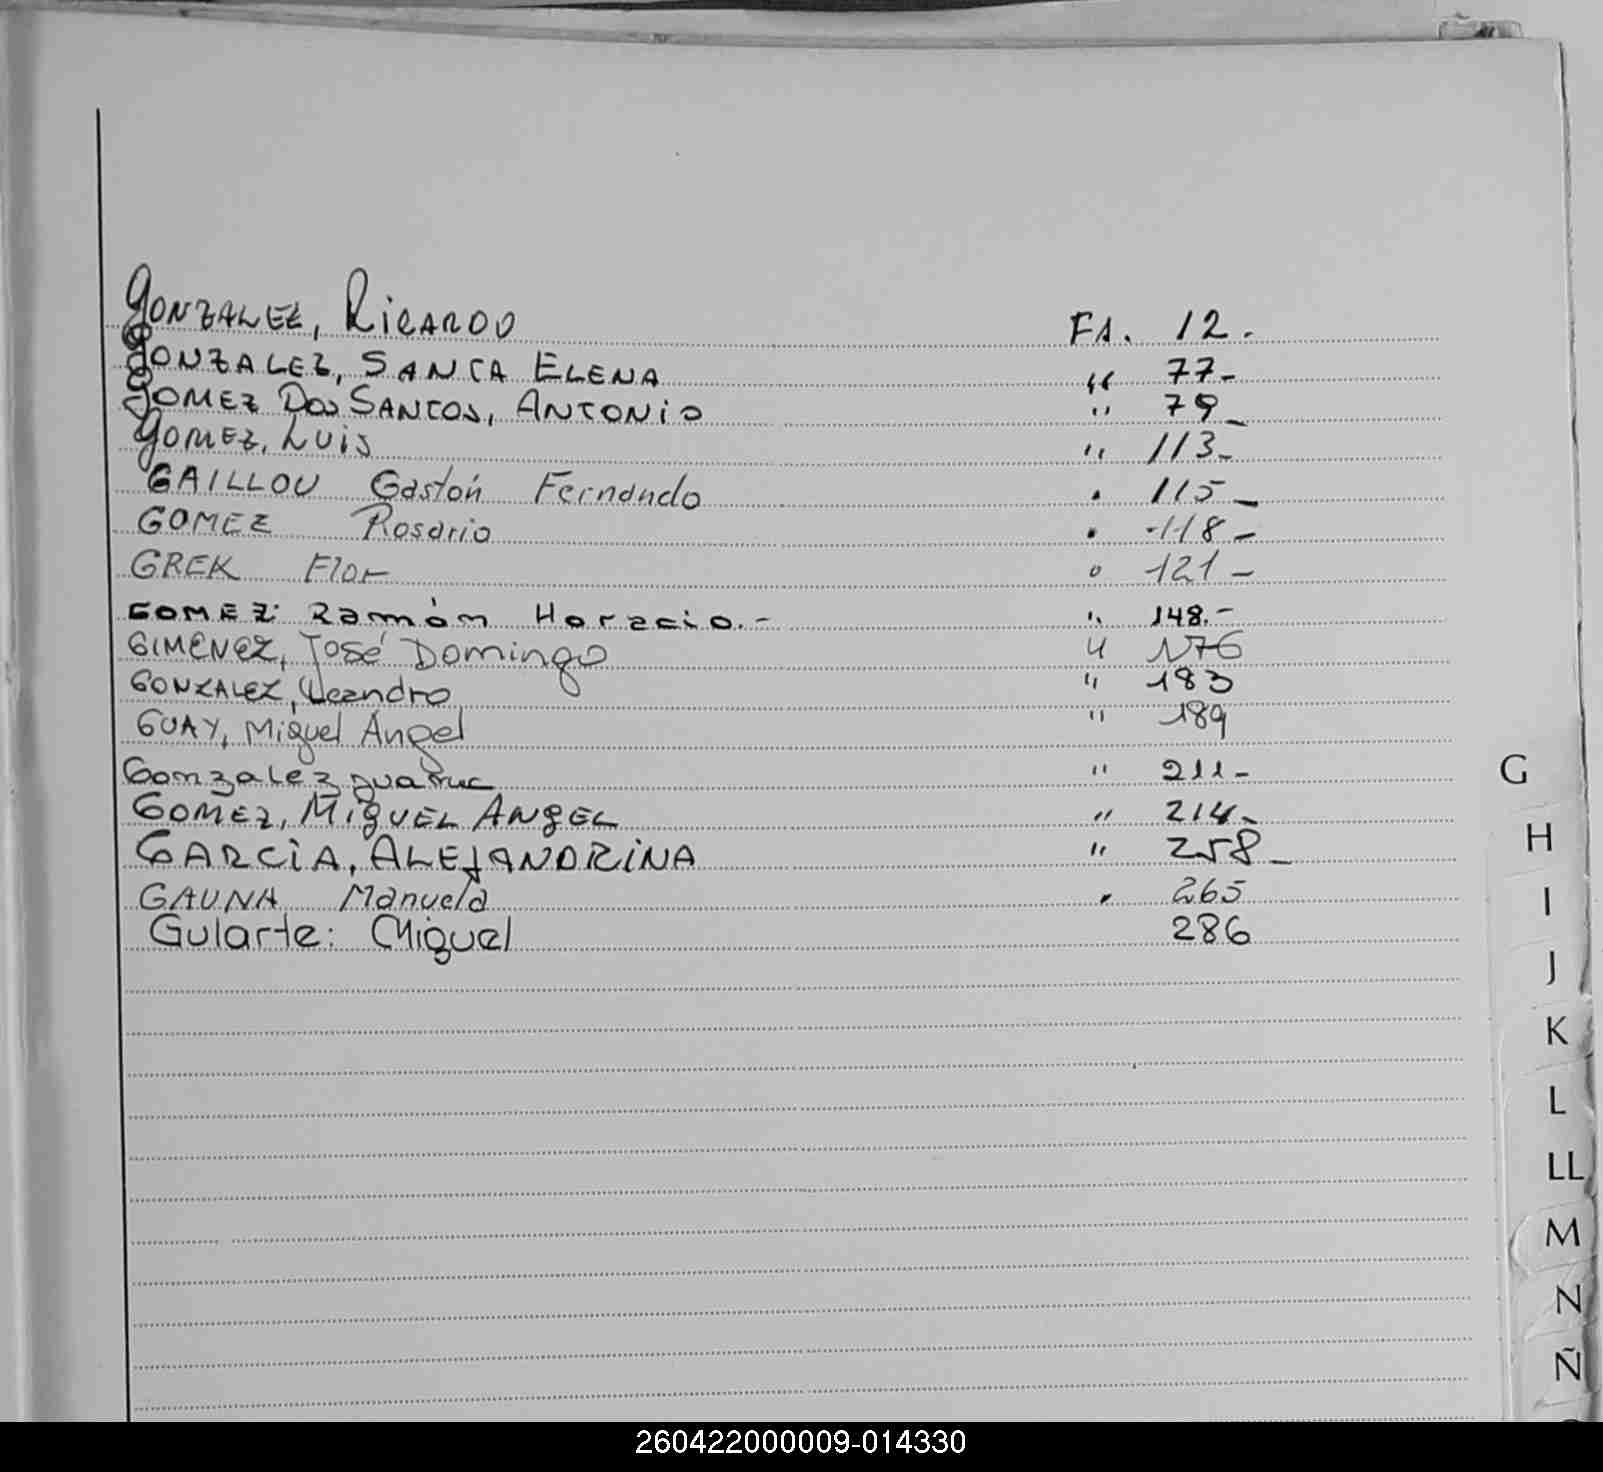 GONZALEZ, RICARDO FA. 12.
GONZALEZ, SANTA ELENA " 77-
GOMEZ DOS SANTOS, ANTONIO " 79_
GOMEZ, LUIS " 113-
GAILLOU Gastón Fernando . 115_
GOMEZ Rosario . 118-
GREK Flor . 121-
GOMEZ: Ramón Horacio.- " 148.-
GIMENEZ, José Domingo " 176
GONZALEZ, Leandro " 183
GUAY, Miguel Ángel " 189
Gonzalez " 211-
GOMEZ, MIGUEL ANGEL " 214-
GARCÍA, ALEJANDRINA " 258_
GAUNA Manuela " 265
Gularte: Miguel 286
G
H
I
J
K
L
LL
M
N
Ñ
260422000009-014330